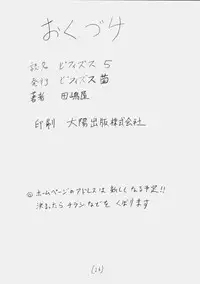 おくづけ
誌名 ビフィズス 5
発行 ビフィズス菌
著者 田嶋屋
印刷 大陽出版株式会社
◎ホームページのアドレスは新しくなる予定!!
決まったらチラシなどをくばります
(26)